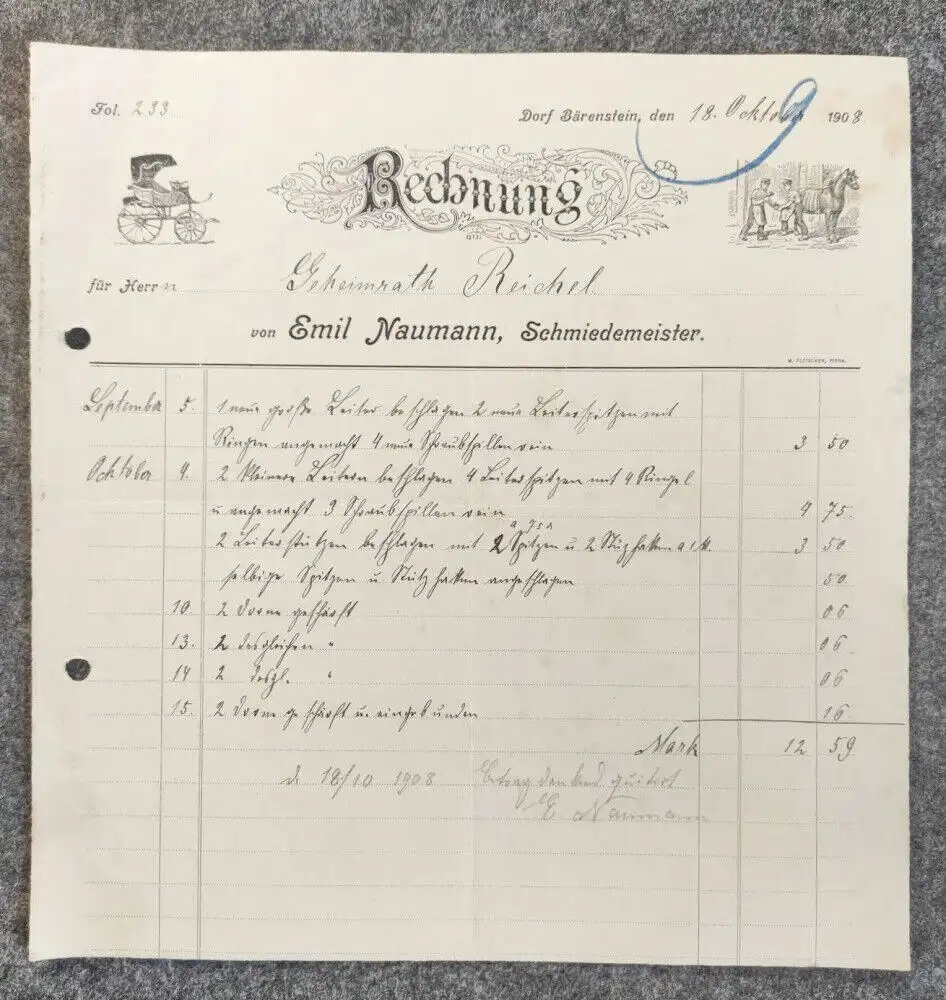 Fol. 233
Dorf Bärenstein, den 18. Oktob 1908
Rechnung
für Herrn Geheimrath Reichel
von Emil Naumann, Schmiedemeister.
M. FLEISCHER, PIRNA.
September 5. 1 neue große Leiter beschlagen 2 neue Leiterspitzen mit
Ringen angemacht 4 neue Schraubspillen rein 3 50
Ocktober 9. 2 kleinere Leitern beschlagen 4 Leiterspitzen mit 4 Ringel
u angemacht 3 Schraubspillen rein 4 75
2 Leiterstützen beschlagen mit 2 Spitzen u. 2 Stüzhaken 3 50
selbige Spitzen u Stützhaken angeschlagen 50
10. 2 Dorne geschärft 06
13. 2 desgleichen " 06
14 2 desgl. " 06
15. 2 Dorne geschärft u. eingebunden 16
Mark 12 59
d. 18/10 1908 Betrag dankend quitirt
E Naumann